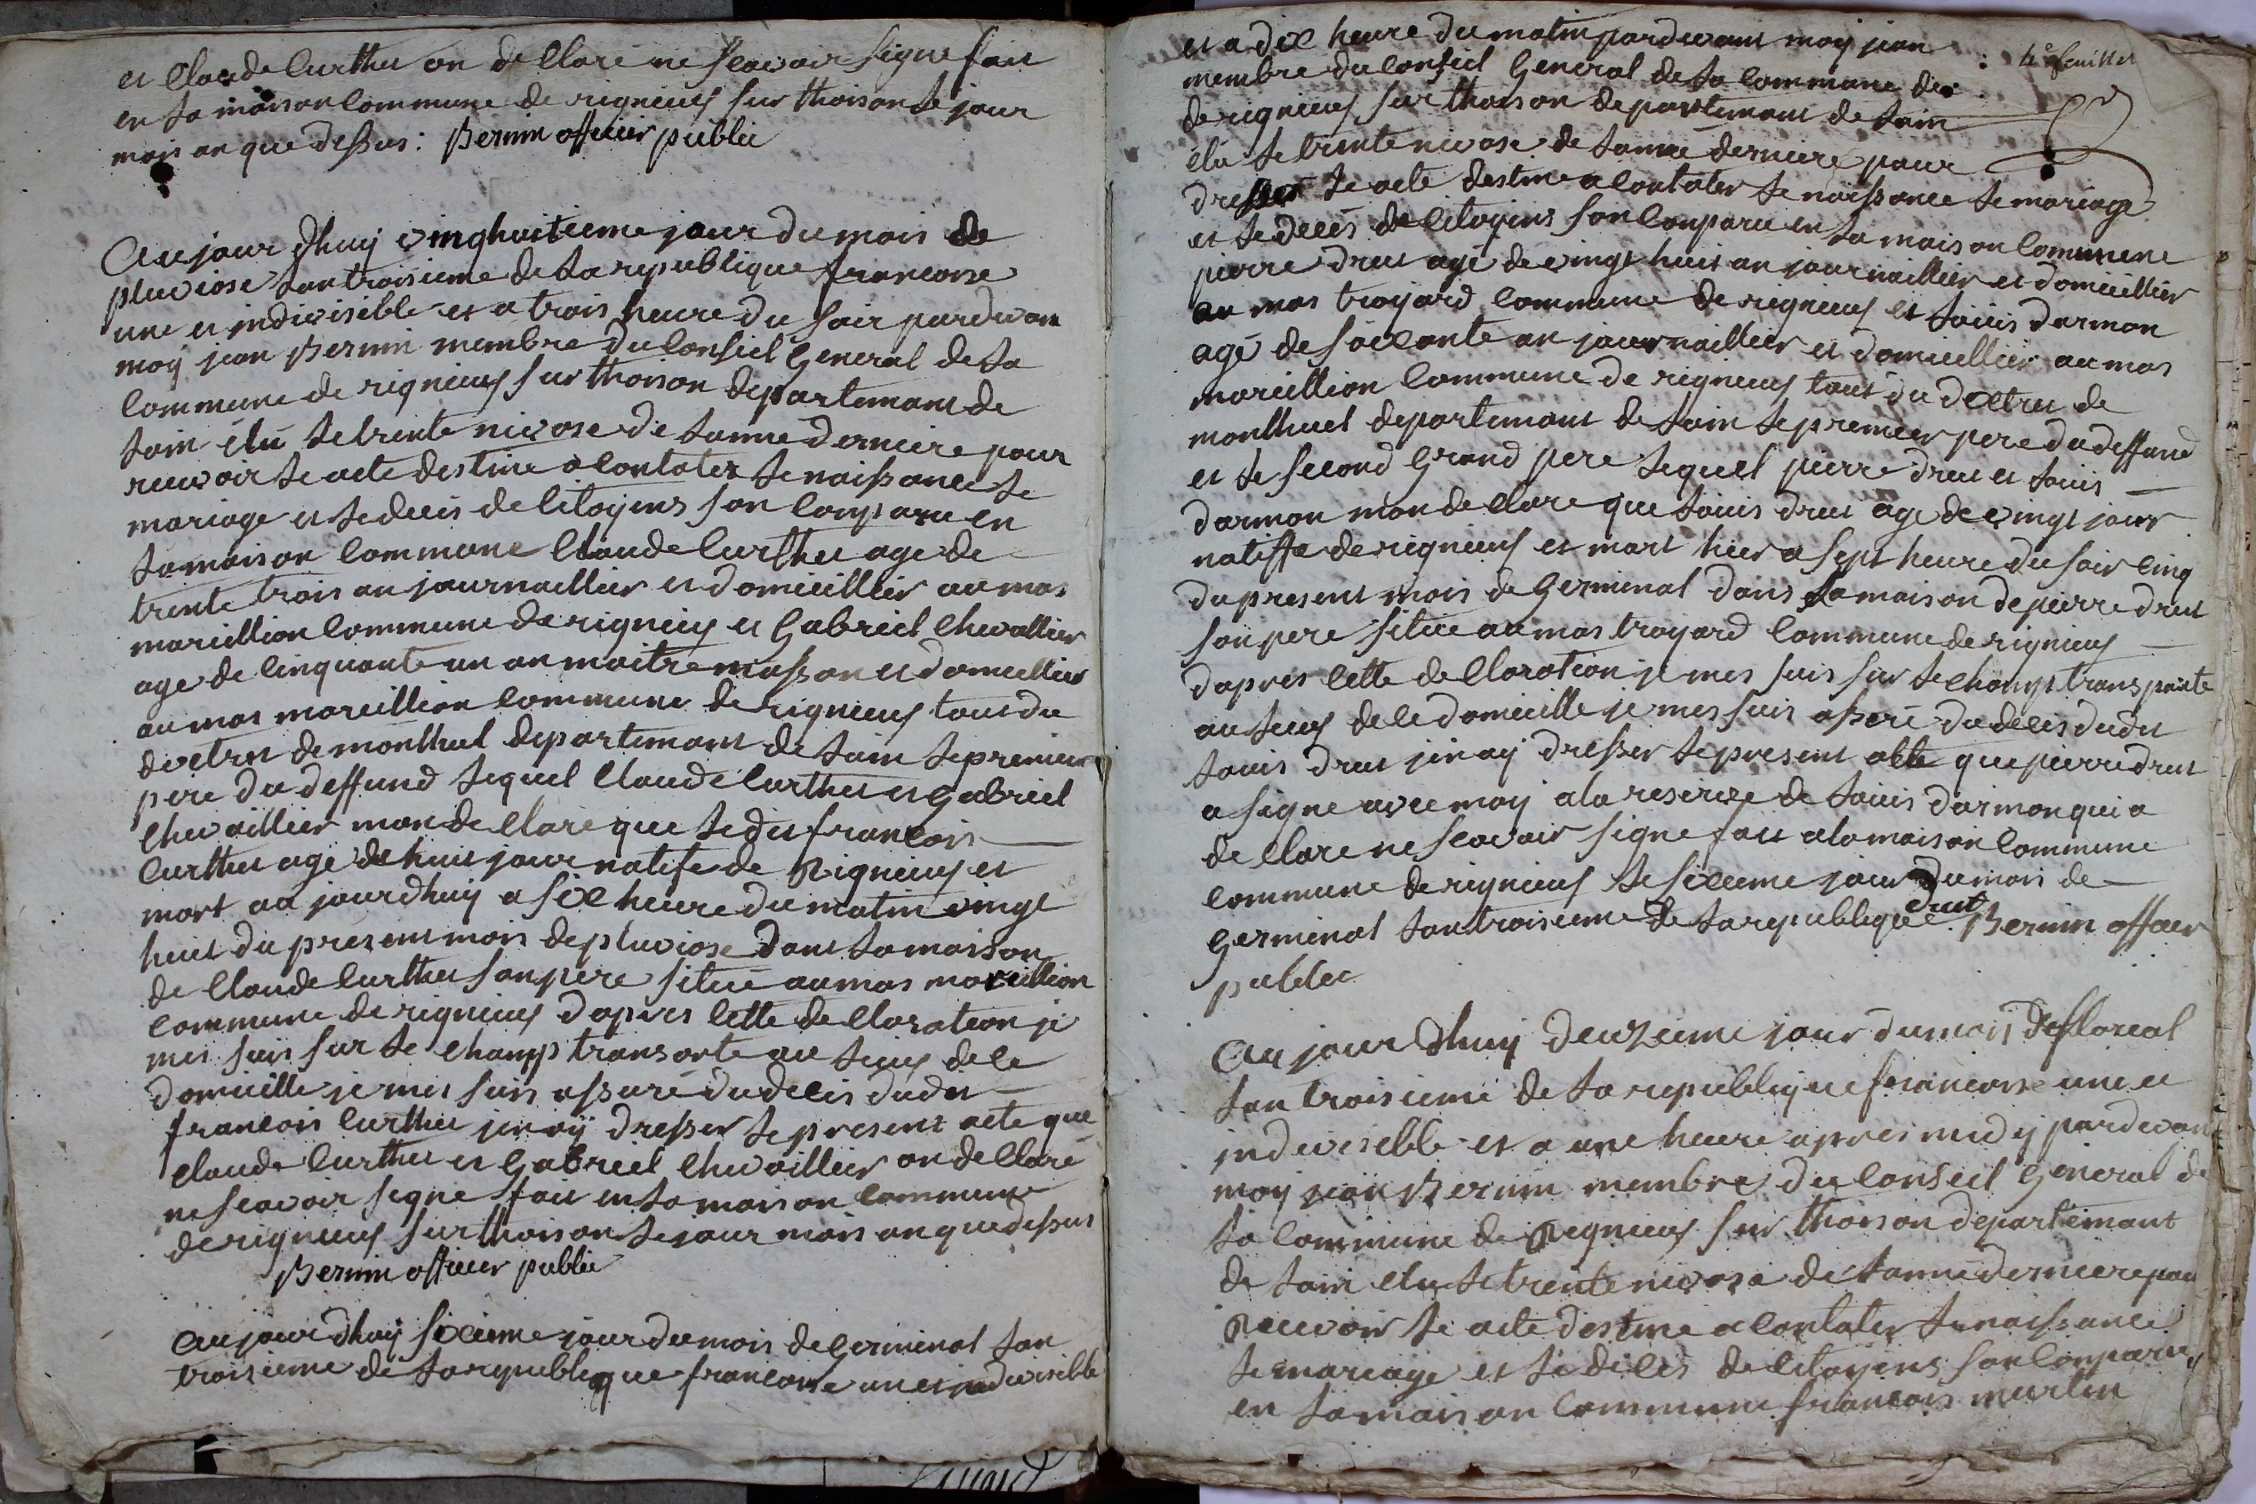 et Claude Curthet on declaré ne scavoir signe fait
en la maison Commune de rignieux sur thoison le jour
mois an que dessus : Bernin officier public
Au jour dhuy vinghuitieme jour du mois de
pluviose lan troisieme de la republique francoise
une et indivisible et a trois heure du soir pardevan
moy jean Bernin membre du Conseil General de la
Commune de rignieux sur thoison departemant de
lain élu le trente nivose de lanne derniere pour
recevoir le acte destine a Contater le naissance le
mariage et le decés de Citoyens son Conparu en
la maison Commune Claude Curthet age de
trente trois an journaillier et domicillier au mas
marcillion Commune de rignieux et Gabriel Chevallier
age de Cinquante un an maitre masson et domicillier
au mas marcillion Commune de rignieux tout du
dixtret de monthuel departemant de lain le premier
pere du deffund lequel Claude Curthet et Gabriel
Chevaillier mon declaré que le dit francois
Curthet agé de huit jour natife de Rignieux et
mort au jourdhuy a six heure du matin vingt
huit du present mois de pluviose dans la maison
de Claude Curthet son pere situé au mas marcillion
Commune de rignieux dapres Cette declaration je
mes suis sur le Champ transorté au lieux de le
domicille je mes suis assuré du decés dudit
francois Curthet jen ay dresser le present acte que
Claude Curthet et Gabriel Chevaillier on declaré
ne scavoir signe fait en la maison Commune
de rignieux sur thoison le jour mois an que dessus
Bernin officier public
Au jour dhuy sixieme jour du mois de Germinal lan
troisieme de la republique francoise une et indivisible
4e feuillet
et a dix heure du matin pardevant moy jean
membre du Conseil General de la Commune de
de rignieux sur thoison departemant de lain
élu le trente nivose de lanné derniere pour
dresser le acte destine a Contater le naissance le mariage
et le decés de Citoyens son Conparu en la maison Commune
pierre drut agé de vingt huit an journaillier et domicillier
au mas troyard Commune de rignieux et louis darmon
agé de soixante an journaillier et domicillier au mas
marcillion Commune de rignieux tout du dixtret de
monthuel departemant de lain le premier pere du deffund
et le second Grand pere lequel pierre drut et louis
darmon mon declare que louis drut age de vingt jour
natiffe de rignieux et mort hier a sept heure du soir Cinq
du present mois de Germinal dans la maison de pierre drut
son pere situé au mas troyard Commune de rignieux
dapres Cette declaration je mes suis sur le Champ transporte
au lieux de le domicille je mes suis asseré du decés dudit
louis drut jen ay dresser le present acte que pierre drut
a signe avec moy a la reserve de louis darmon qui a
declare ne scavoir signe fait a la maison Commune
Commune de rignieux le sixieme jour du mois de
Germinal lan troisieme de la republique drut Bernin officier
public
Au jour dhuy deuzieme jour du mois de floreal
lan troisieme de la republique francoise une et
indivisible et a une heure apres midy pardevan
moy jean Bernin membre du Conseil General de
la Commune de Rignieux sur thoison departemant
de lain élu le trente nivose de lanné derniere pour
Recevoir le acte destine a Contater le naissance
le mariage et le decés de Citoyens son Conparu
en la maison Commune francois merlin